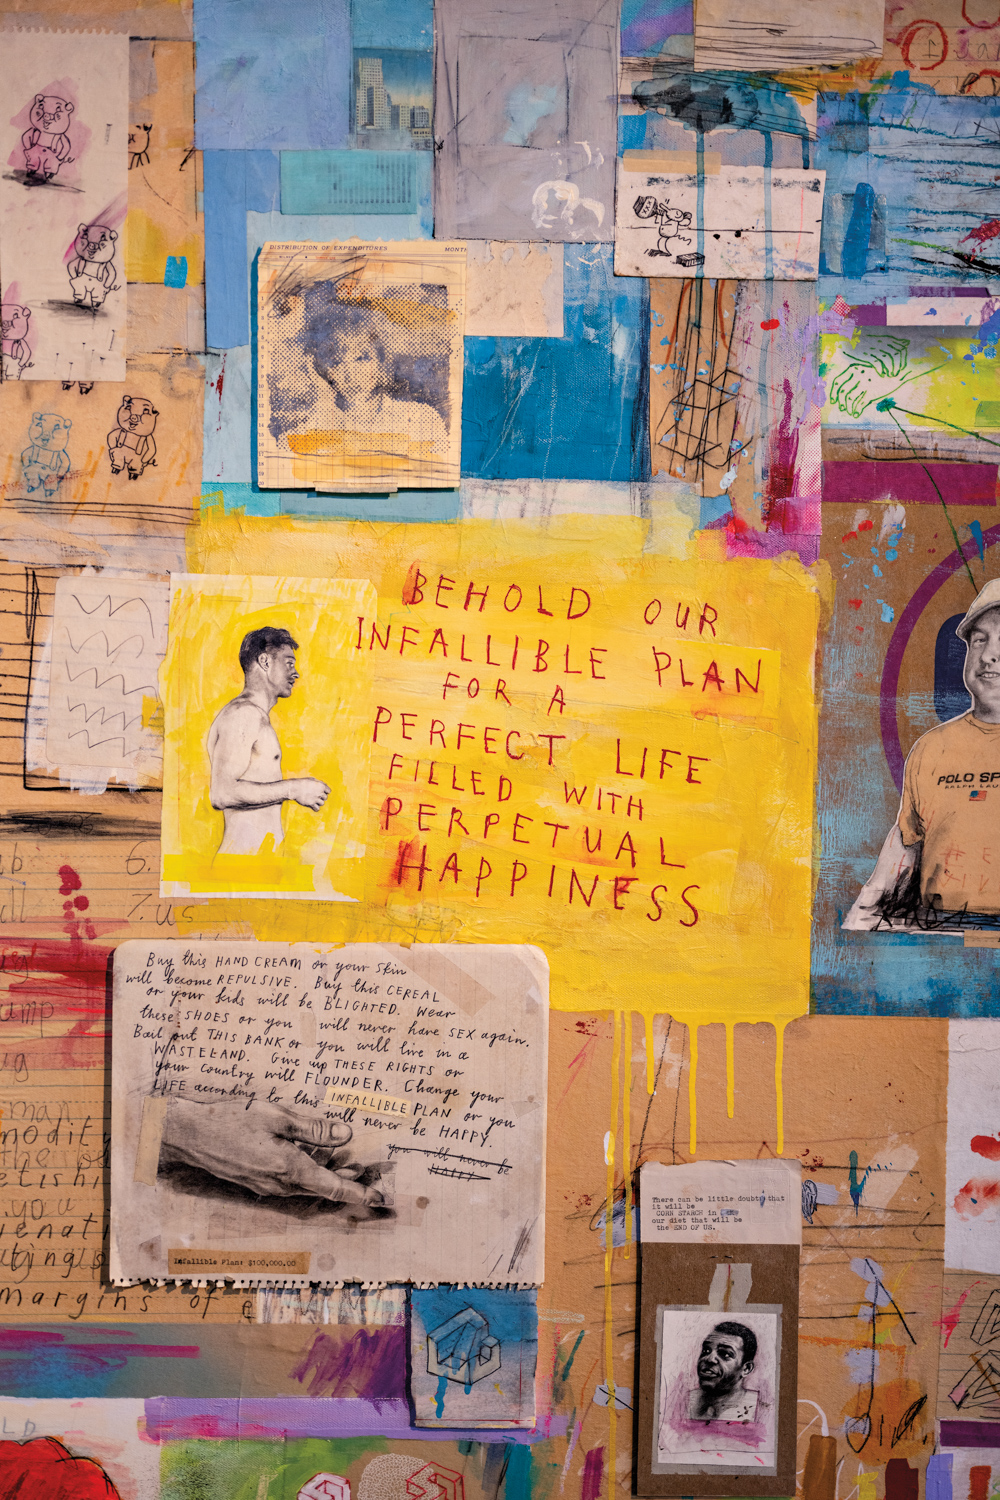 DISTRIBUTION OF EXPENDITURES
BEHOLD OUR
INFALLIBLE PLAN
FOR A
PERFECT LIFE
FILLED WITH
PERPETUAL
HAPPINESS
POLO SP
RALPH LAU
6.
7. us
Buy this HAND CREAM or your skin
will become REPULSIVE. Buy this CEREAL
or your kids will be BLIGHTED. Wear
these SHOES or you will never have SEX again.
Bail out THIS BANK or you will live in a
WASTELAND. Give up THESE RIGHTS or
your country will FLOUNDER. Change your
LIFE according to this INFALLIBLE PLAN or you
will never be HAPPY.
you will never be
HAPPY
Infallible Plan: $100,000.00
man
modity
the be
etishi
you
ienati
margins of
There can be little doubt that
it will be
CORN STARCH in
our diet that will be
the END OF US.